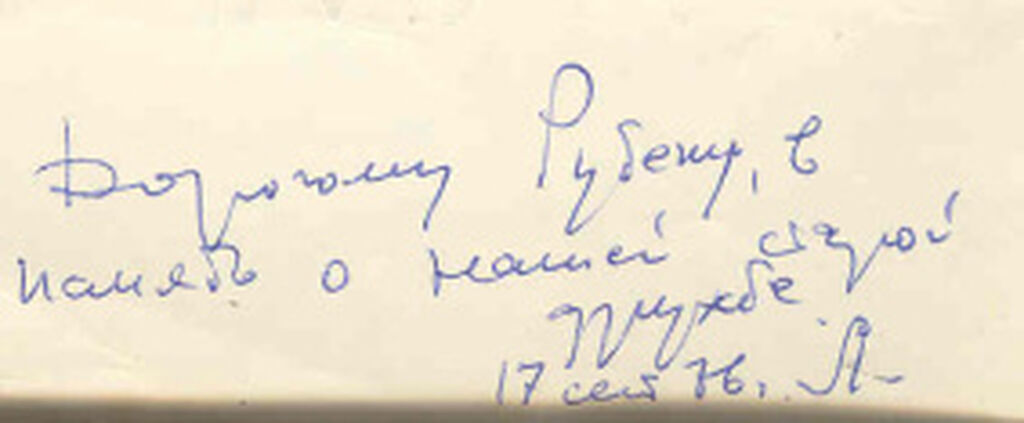 Дорогому Рубену, в
память о нашей старой
дружбе.
17 сент 76. Л-